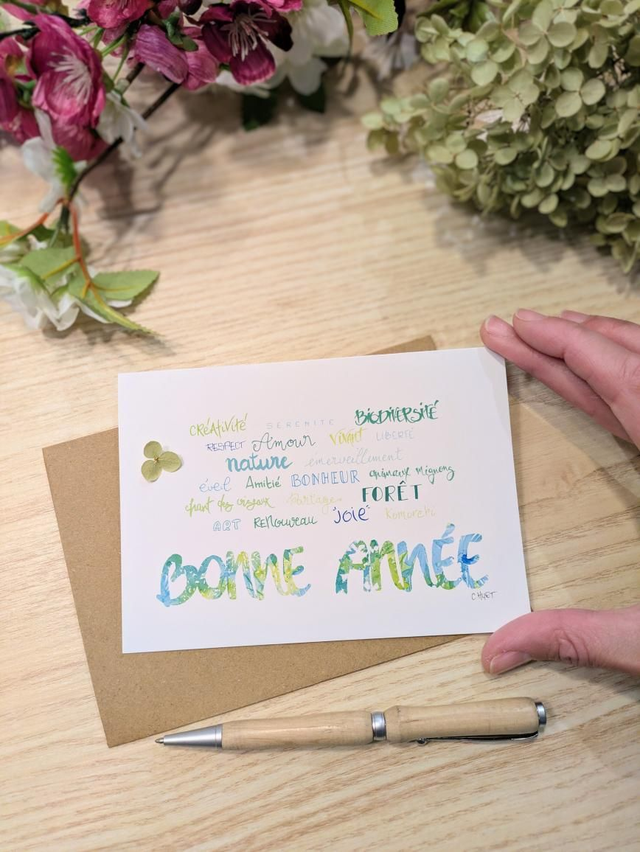 créativité SÉRÉNITÉ BIODIVERSITÉ
RESPECT Amour vivant LIBERTÉ
nature émerveillement
éveil Amitié BONHEUR animaux mignons
chant des oiseaux Partage FORÊT
ART Renouveau JOIE Komorebi
BONNE ANNÉE